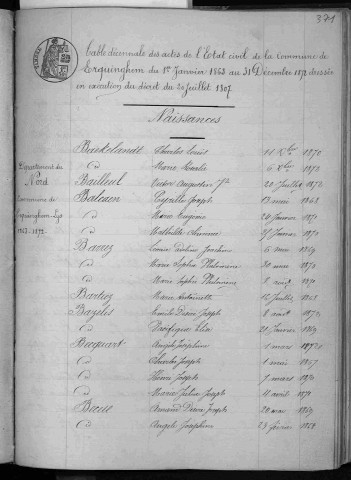 371
Table décennale des actes de l'Etat civil de la Commune de
Erquinghem du 1er Janvier 1863 au 31 Décembre 1872 dressée
en exécution du décret du 20 Juillet 1807.
Naissances
Département du
Nord
Commune de
Erquinghem-Lys
1863-1872
Backelandt Charles Louis 11 Xbre 1870
Cd Marie 6 Xbre 1872
Bailleul Victor Augustin 20 Juillet 1872
Balcaen Cyrille Joseph 13 mai 1868
Cd Marie Eugénie 20 Janvier 1870
Cd Mathilde 27 Janvier 1870
Bavez 6 mai 1869
Cd Marie Sophie Philomène 30 mai 1870
Cd Marie Sophie Philomène 8 août 1870
Marie Antoinette 12 Juillet 1868
Bazelis Emile Désiré Joseph 8 août 1870
Cd Elise 20 Février 1869
Becquart Angèle Joséphine 1 mars
Cd Charles Joseph 1 mai 1867
Cd Henri Joseph 7 mars 1870
Cd Maria Julie Joseph 11 avril 1872
Armand Désiré Joseph 20 mai 1869
Cd Angèle Joséphine 23 février 1868